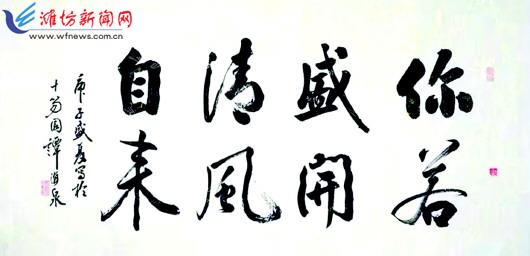 潍坊新闻网
www.wfnews.com.cn
你若
盛開
清風
自来
庚子盛夏寫於
十笏园譚海泉